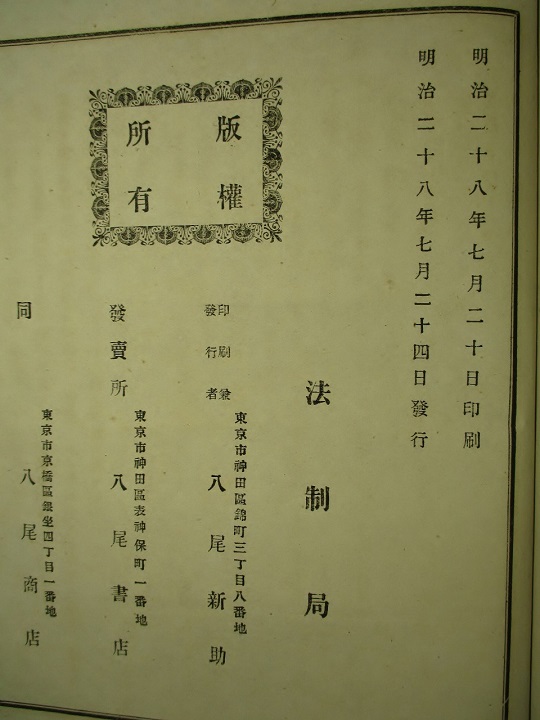 明治二十八年七月二十日印刷
明治二十八年七月二十四日發行
法制局
版權
所有
印刷兼
發行者
東京市神田區錦町三丁目八番地
八尾新助
發賣所
東京市神田區表神保町一番地
八尾書店
同
東京市京橋區銀座四丁目一番地
八尾商店